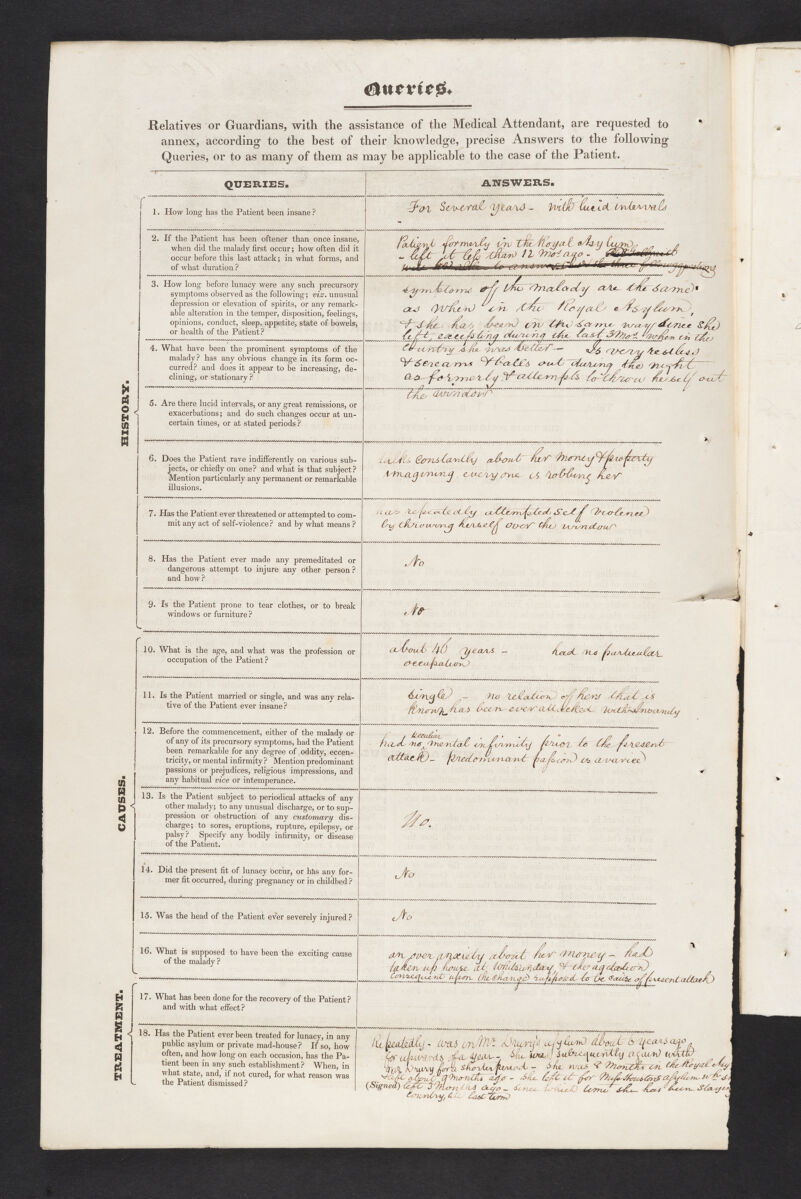 Queries.
Relatives or Guardians, with the assistance of the Medical Attendant, are requested to
annex, according to the best of their knowledge, precise Answers to the following
Queries, or to as many of them as may be applicable to the case of the Patient.
QUERIES.
ANSWERS.
HISTORY.
1. How long has the Patient been insane?
For Several years - with lucid intervals
2. If the Patient has been oftener than once insane,
when did the malady first occur; how often did it
occur before this last attack; in what forms, and
of what duration?
Patient formerly in the Royal Asylum
- left it less than 12 Mos. ago -
3. How long before lunacy were any such precursory
symptoms observed as the following; viz. unusual
depression or elevation of spirits, or any remark-
able alteration in the temper, disposition, feelings,
opinions, conduct, sleep, appetite, state of bowels,
or health of the Patient?
symptoms of the malady are the same
as when in the Royal Asylum,
& she has been in the same way since she
left, excepting during the last 3 Mos. when in the
4. What have been the prominent symptoms of the
malady? has any obvious change in its form oc-
curred? and does it appear to be increasing, de-
clining, or stationary?
Country she was better - Is very restless
& screams & bawls out during the night
as formerly & attempts to throw herself out
the window
5. Are there lucid intervals, or any great remissions, or
exacerbations; and do such changes occur at un-
certain times, or at stated periods?
6. Does the Patient rave indifferently on various sub-
jects, or chiefly on one? and what is that subject?
Mention particularly any permanent or remarkable
illusions.
talks Constantly about her money & property
imagining every one is robbing her
7. Has the Patient ever threatened or attempted to com-
mit any act of self-violence? and by what means?
has repeatedly attempted self violence
by throwing herself over the window
8. Has the Patient ever made any premeditated or
dangerous attempt to injure any other person?
and how?
No
9. Is the Patient prone to tear clothes, or to break
windows or furniture?
No
CAUSES.
10. What is the age, and what was the profession or
occupation of the Patient?
about 46 years - had no particular
occupation
11. Is the Patient married or single, and was any rela-
tive of the Patient ever insane?
Single - no relation of hers that is
known has been ever attacked with Insanity
12. Before the commencement, either of the malady or
of any of its precursory symptoms, had the Patient
been remarkable for any degree of oddity, eccen-
tricity, or mental infirmity? Mention predominant
passions or prejudices, religious impressions, and
any habitual vice or intemperance.
peculiar
had no mental infirmity prior to the present
attack - predominant passion is avarice
13. Is the Patient subject to periodical attacks of any
other malady; to any unusual discharge, or to sup-
pression or obstruction of any customary dis-
charge; to sores, eruptions, rupture, epilepsy, or
palsy? Specify any bodily infirmity, or disease
of the Patient.
No.
14. Did the present fit of lunacy occur, or has any for-
mer fit occurred, during pregnancy or in childbed?
No
15. Was the head of the Patient ever severely injured?
No
16. What is supposed to have been the exciting cause
of the malady?
an over anxiety about her money - had
taken up house at Whitsunday, & the agitation
consequent upon the change supposed to be cause of present attack
TREATMENT.
17. What has been done for the recovery of the Patient?
and with what effect?
18. Has the Patient ever been treated for lunacy, in any
public asylum or private mad-house? If so, how
often, and how long on each occasion, has the Pa-
tient been in any such establishment? When, in
what state, and, if not cured, for what reason was
the Patient dismissed?
Repeatedly - was in Mr. Drury's asylum about 6 years ago
for upwards of a year - She was subsequently again with
Mr Drury for a shorter period - She was 8 Months in the Royal Asy
& left about 9 months ago - She left it for Miss Houston's asylum wh. s
(Signed) left 3 Months ago - since which time she has been staying
Country, till last term